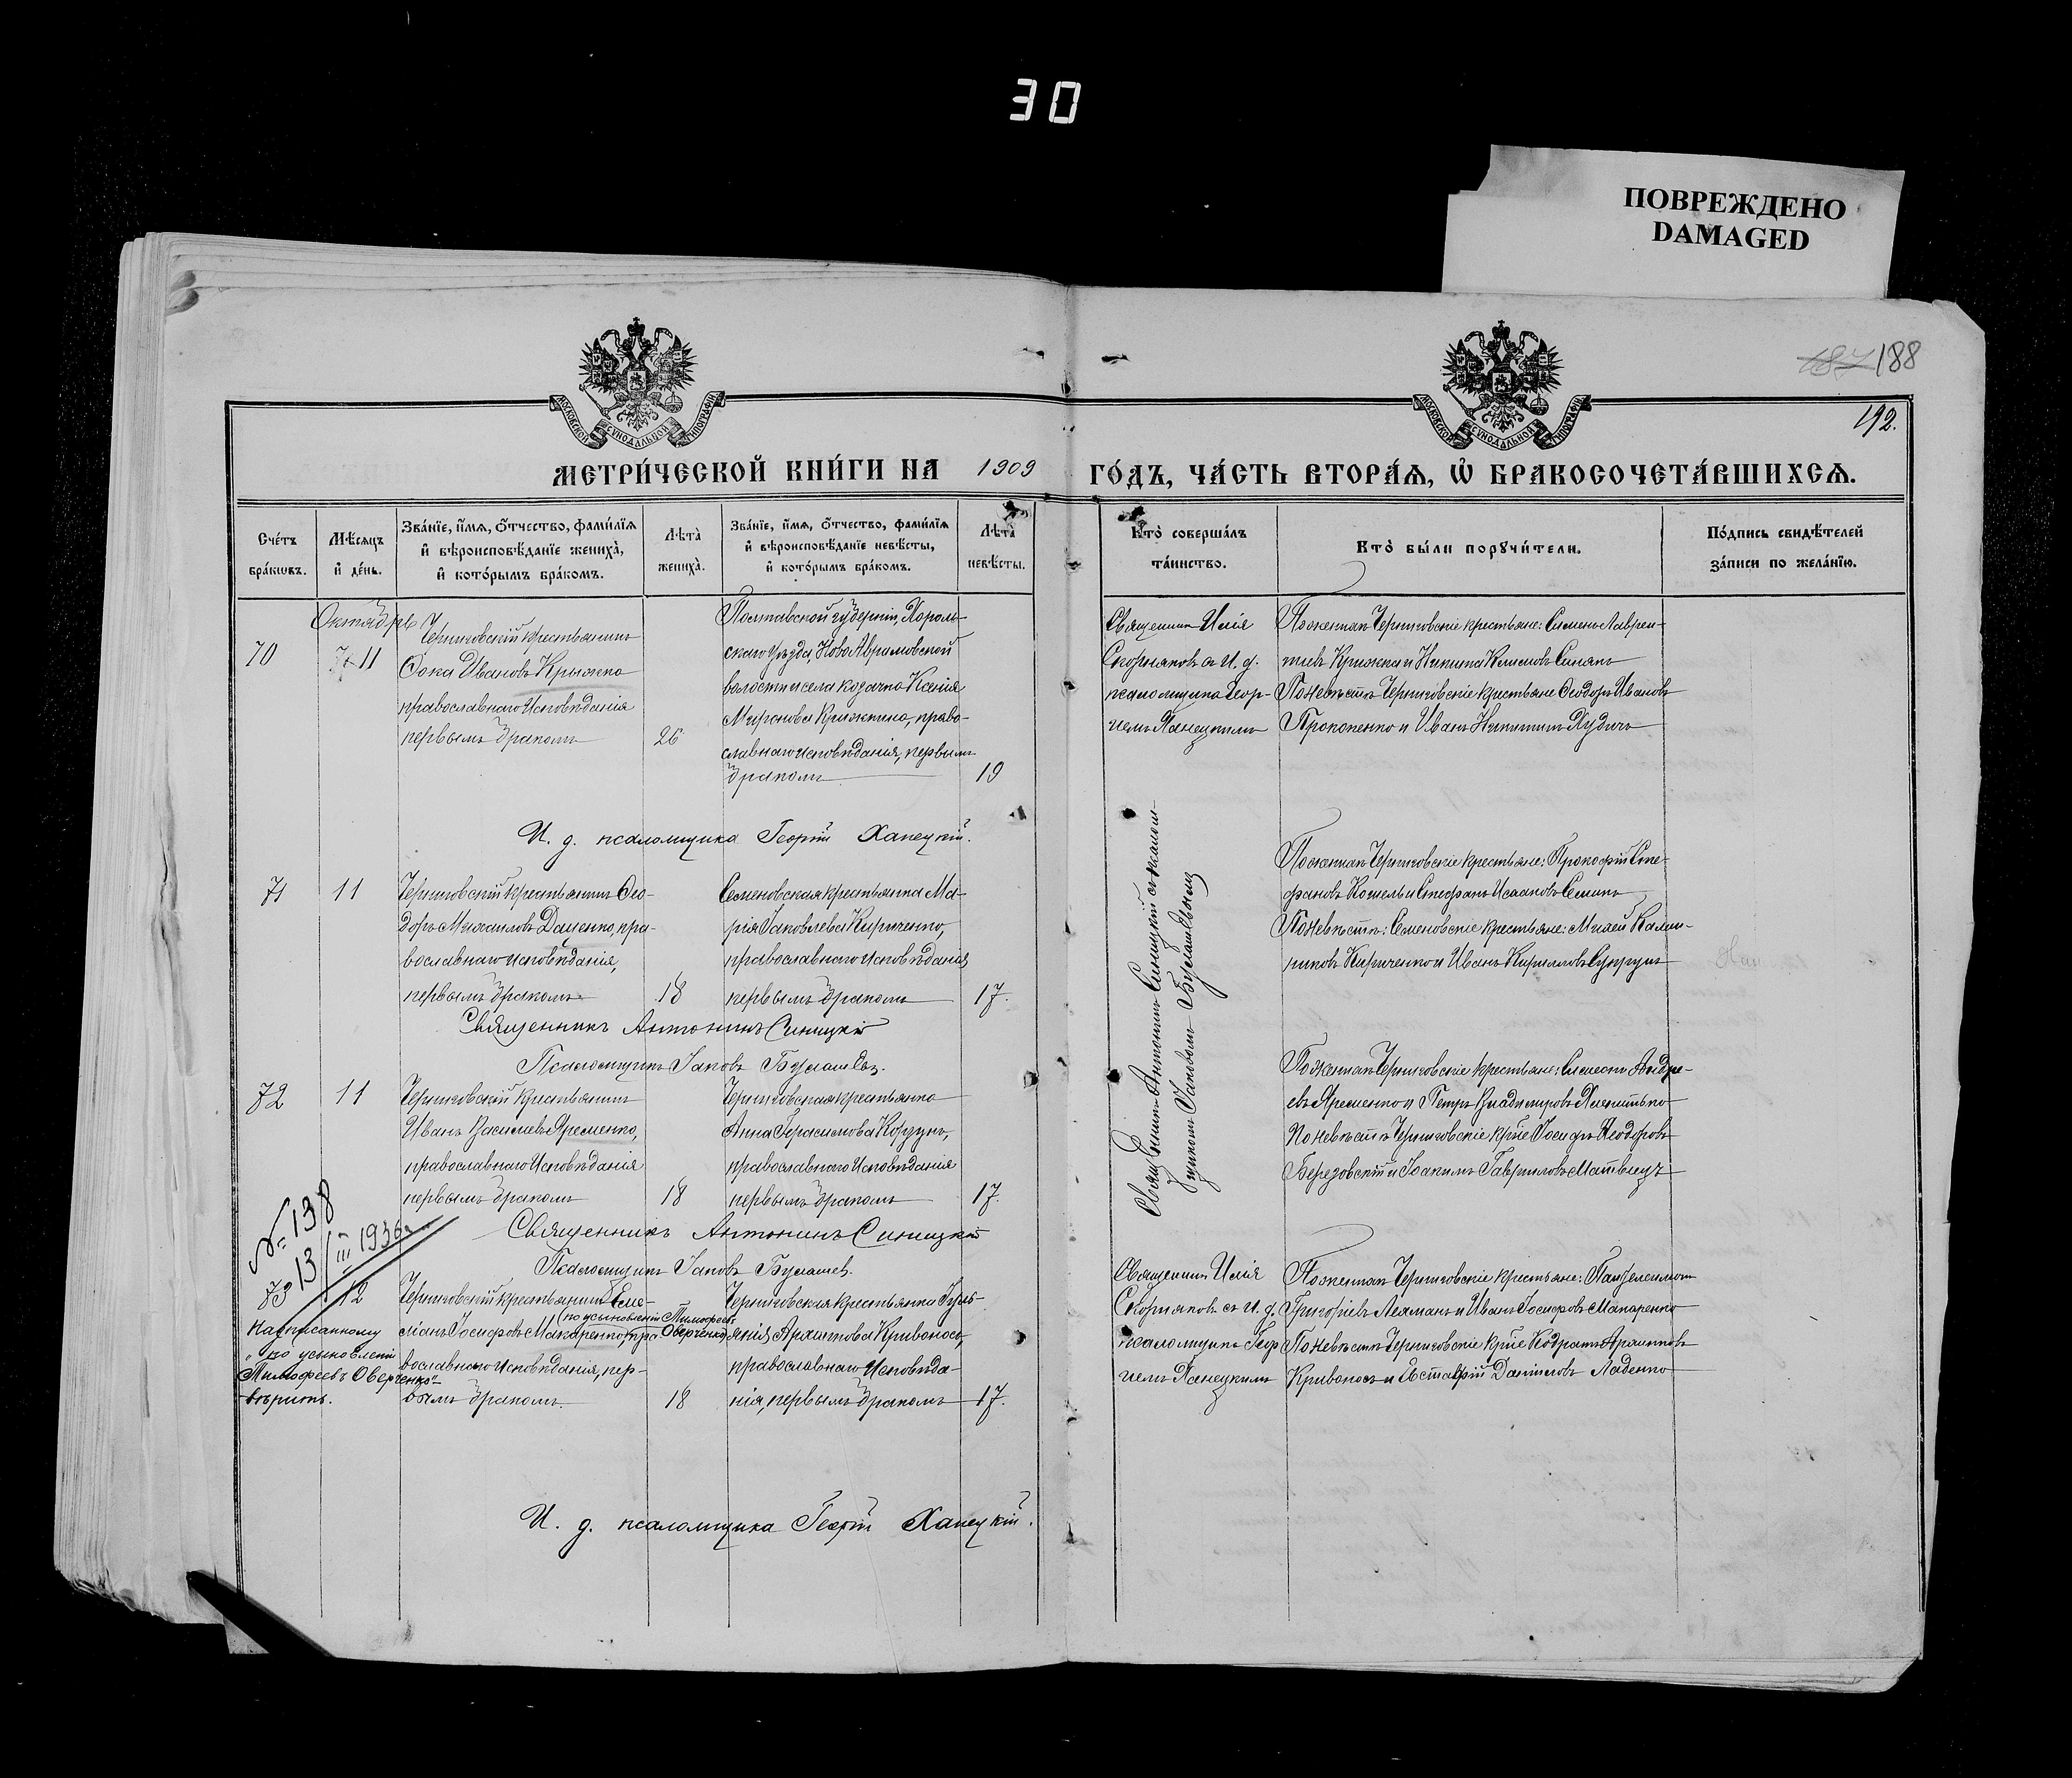 30
ПОВРЕЖДЕНО
DAMAGED
187 188
192.
МОСКОВСКОЙ СУНОДАЛЬНОЙ ТИПОГРАФІИ
МОСКОВСКОЙ СУНОДАЛЬНОЙ ТИПОГРАФІИ
МЕТРИ́ЧЕСКОЙ КНИ́ГИ НА 1909 ГО́ДЪ, ЧА́СТЬ ВТОРА́Я, Ѡ҆ БРАКОСОЧЕТА́ВШИХСѦ.
Сче́тъ
бра́кѡвъ.
Мѣ́сяцъ
и҆ де́нь.
Зва́нїе, и҆́мя, ѻ҆́тчество, фами́лїя
и҆ вѣроисповѣ́данїе жениха̀,
и҆ кото́рымъ бра́комъ.
Лѣта̀
жениха̀.
Зва́нїе, и҆́мя, ѻ҆́тчество, фами́лїя
и҆ вѣроисповѣ́данїе невѣ́сты,
и҆ кото́рымъ бра́комъ.
Лѣта̀
невѣ́сты.
Кто̀ соверша́лъ
та́инство.
Кто̀ бы́ли порꙋчи́тели.
По́дпись свидѣ́телей
за́писи по жела́нїю.
Октябрь
70
11
Черниговскій крестьянинъ
Ѳока Ивановъ Крыжко
православнаго исповѣданія
первымъ бракомъ
26
Полтавской губерніи, Хороль-
скаго уѣзда, Ново Аврамовской
волости и села козачка Ксенія
Миронова Крижкина, право-
славнаго исповѣданія, первымъ
бракомъ
19
Священникъ Илія
Скорняковъ съ И. д.
псаломщика Геор-
гіемъ Ханецкимъ
По женихѣ Черниговскіе крестьяне: Симеонъ Лаврен-
тіевъ Крижка и Никита Климовъ
По невѣстѣ Черниговскіе крестьяне Ѳеодоръ Ивановъ
Прокопенко и Иванъ Никитинъ
И. д. псаломщика Георгій Ханецкій.
71
11
Черниговскій крестьянинъ Ѳео-
доръ Михаиловъ Даценко, пра-
вославнаго исповѣданія,
первымъ бракомъ
18
Семеновская крестьянка Ма-
рія Іаковлева Кириченко,
православнаго исповѣданія
первымъ бракомъ
17.
Священникъ Антонинъ Синицкій съ псалом-
щикомъ Іаковомъ Бугашевымъ
По женихѣ Черниговскіе крестьяне: Прокофій Сте-
фановъ Кошель и Стефанъ Исааковъ
По невѣстѣ: Семеновскіе крестьяне: Михей Калин-
никовъ Кириченко и Иванъ Кирилловъ Супрунъ
Священникъ Антонинъ Синицкій
Псаломщикъ Іаковъ
72
11
Черниговскій крестьянинъ
Иванъ Васильевъ Яременко,
православнаго исповѣданія
первымъ бракомъ
18
Черниговская крестьянка
Анна Герасимова
православнаго исповѣданія
первымъ бракомъ
17.
По женихѣ Черниговскіе крестьяне: Симеонъ Андре-
евъ Яременко и Петръ Владиміровъ
По невѣстѣ Черниговскіе кр-не Іосифъ Ѳеодоровъ
Березовскій и Іоакимъ Гавриловъ Матвіецъ
Священникъ Антонинъ Синицкій
Псаломщикъ Іаковъ
№ 138
13/III 1936 г.
73
12
Черниговскій крестьянинъ Еме-
(по усыновленію Тимофеевъ
ліанъ Іосифовъ Макаренко, пра- Оверченко)
вославнаго исповѣданія, пер-
вымъ бракомъ.
18
Написанному
"по усыновленію
Тимофеевъ Оверченко"
вѣрить.
Черниговская крестьянка Гуль-
янія Архипова Кривоносъ,
православнаго исповѣда-
нія, первымъ бракомъ
17.
Священникъ Илія
Скорняковъ съ И. д.
псаломщика Геор
гіемъ Ханецкимъ
По женихѣ Черниговскіе крестьяне: Пантелеимонъ
Григоріевъ Лехманъ и Иванъ Іосифовъ Макаренко
По невѣстѣ Черниговскіе кр-не Кодратъ Архиповъ
Кривоносъ и Евстафій Даниловъ
И. д. псаломщика Георгій Ханецкій.